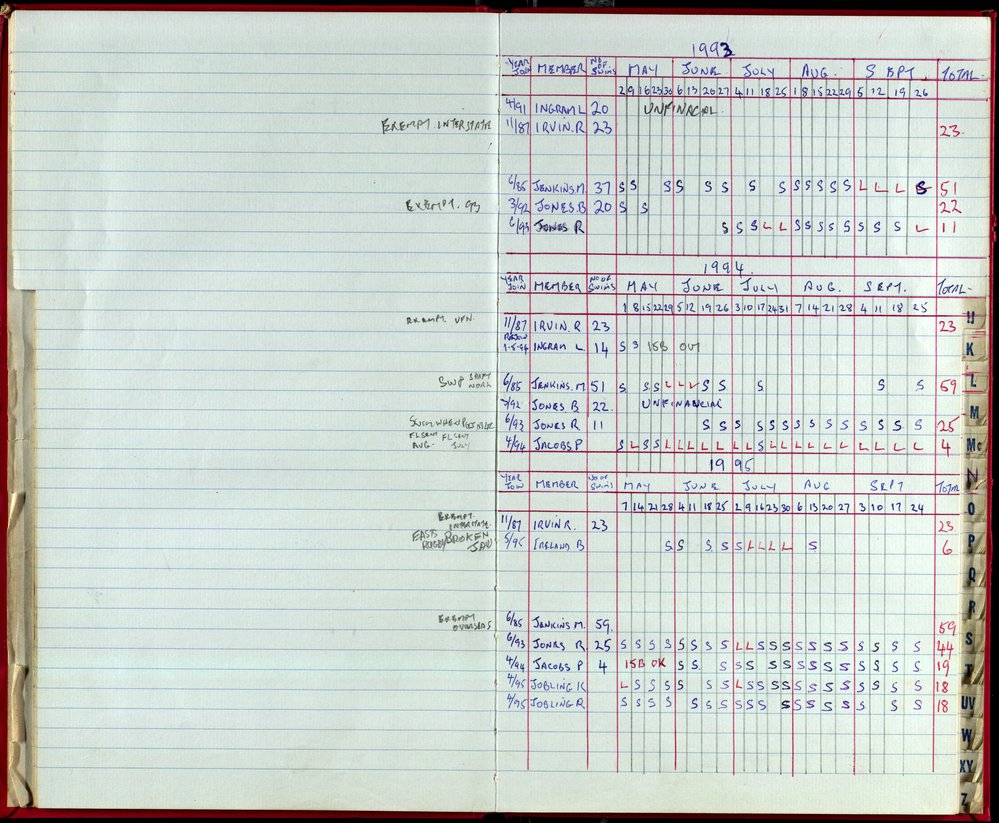 1993
YEAR JOIN MEMBER NO OF SWIMS MAY JUNE JULY AUG. SEPT. TOTAL
2 9 16 23 30 6 13 20 27 4 11 18 25 1 8 15 22 29 5 12 19 26
4/91 INGRAM L 20 UNFINACIAL
EXEMPT. INTERSTATE 11/87 IRVIN. R 23 23.
6/85 JENKINS M. 37 S S S S S S S S S S S S S L L L S 51
EXEMPT. 93 3/92 JONES. B 20 S S 22
6/93 JONES R S S S L L S S S S S S S S L 11
1994.
YEAR JOIN MEMBER NO OF SWIMS MAY JUNE JULY AUG. SEPT. TOTAL
1 8 15 22 29 5 12 19 26 3 10 17 24 31 7 14 21 28 4 11 18 25
EXEMPT. UFN. 11/87 IRVIN. R 23 23
REJOIN 1-5-94 INGRAM L. 14 S S 15B OUT
SWP SHIFT WORK 6/85 JENKINS. M. 51 S S S L L L S S S S S 59
3/92 JONES B 22. UNFINANCIAL
SWIM WHEN POSSIBLE 6/93 JONES R 11 S S S S S S S S S S S S S S 25
AUG. JULY 4/94 JACOBS P S L S S L L L L L L L S L L L L L L L L L L 4
1995
YEAR JOIN MEMBER NO OF SWIMS MAY JUNE JULY AUG SEPT TOTAL
7 14 21 28 4 11 18 25 2 9 16 23 30 6 13 20 27 3 10 17 24
EXEMPT. INTERSTATE. 11/87 IRVIN R. 23 23
EASTS RUGBY BROKEN JAW 5/95 IRELAND B S S S S S S L L L L S 6
EXEMPT OVERSEAS 6/85 JENKINS M. 59. 59
6/93 JONES R 25 S S S S S S S S L L S S S S S S S S S S S 44
4/94 JACOBS P 4 15B OK S S S S S S S S S S S S S S S 19
4/95 JOBLING K L S S S S S S L S S S S S S S S S S S S 18
4/95 JOBLING R S S S S S S S S S S S S S S S S S S 18
IJ
K
L
M
Mc
N
O
P
Q
R
S
T
UV
W
XY
Z